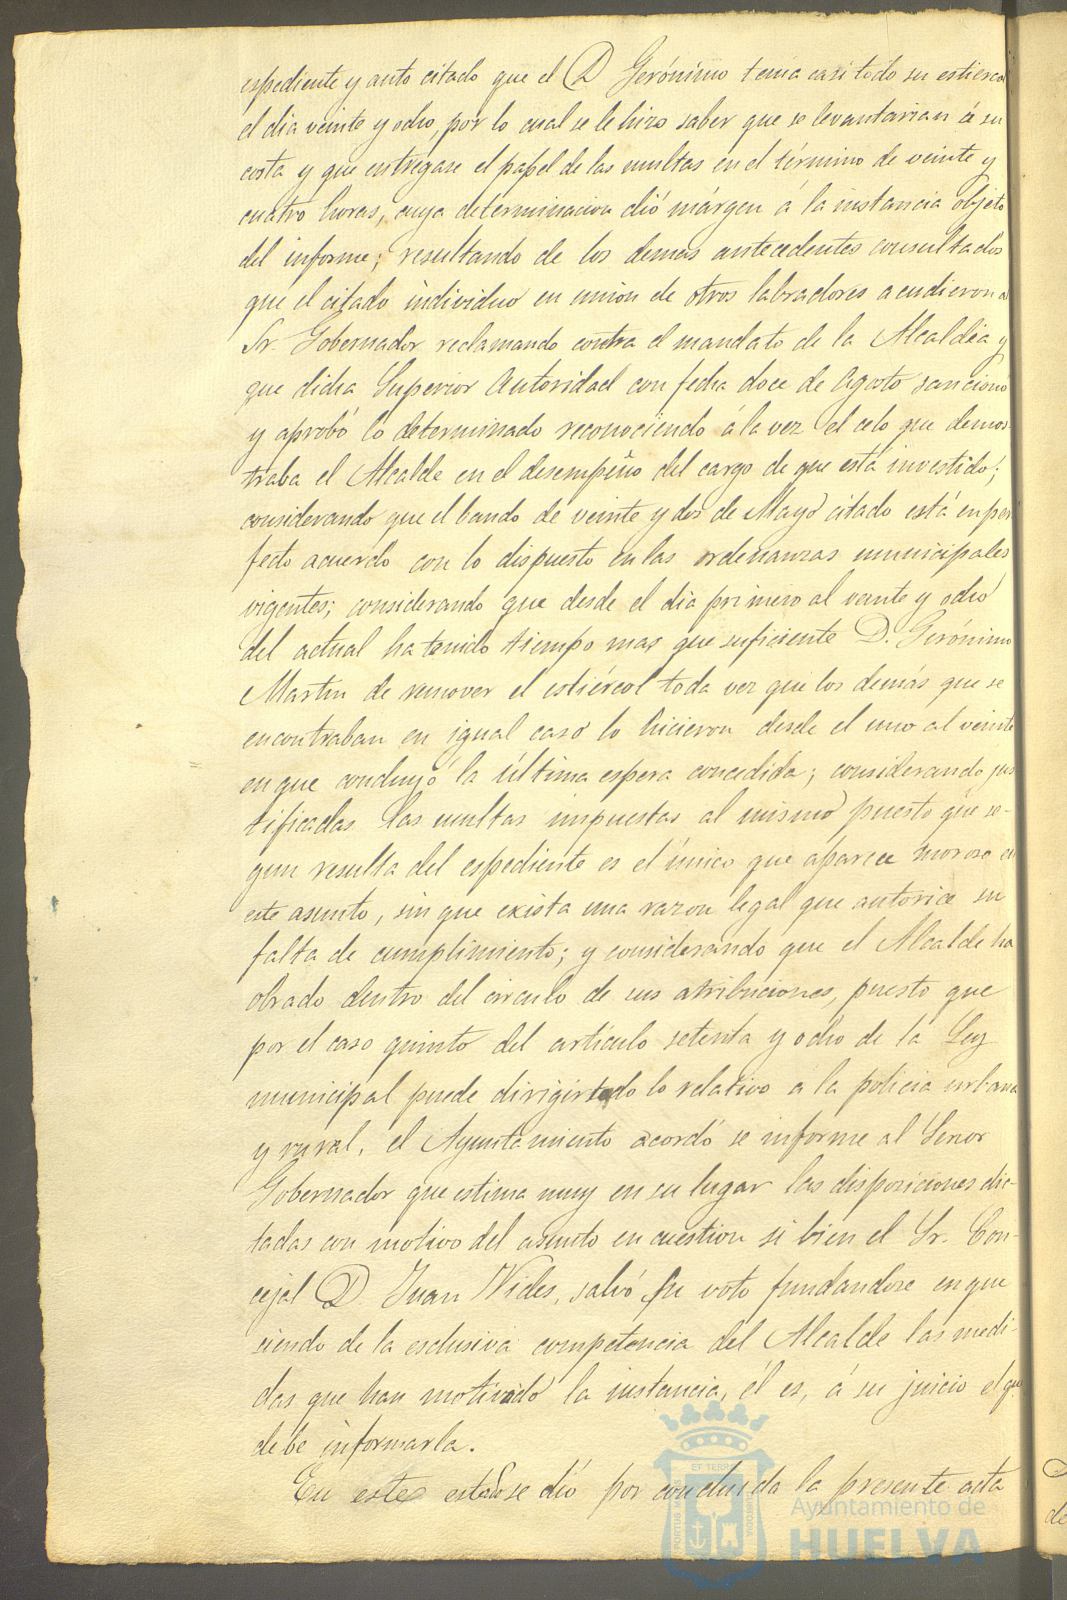 espediente y auto citado que el D Gerónimo tenia casi todo su estiercol
el dia veinte y ocho, por lo cual se le hizo saber que se levantarian á su
costa y que entregase el papel de las multas en el término de veinte y
cuatro horas, cuya determinacion dió márgen á la instancia objeto
del informe; resultando de los demas antecedentes consultados
que el citado individuo en union de otros labradores acudieron al
Sr. Gobernador reclamando contra el mandato de la Alcaldia y
que dicha Superior Autoridad con fecha doce de Agosto sancionó
y aprobó lo determinado reconociendo á la vez el celo que demos-
traba el Alcalde en el desempeño del cargo de que está investido;
considerando que el bando de veinte y dos de Mayo citado está en per
fecto acuerdo con lo dispuesto en las ordenanzas municipales
vigentes; considerando que desde el dia primero al veinte y ocho
del actual ha tenido tiempo mas que suficiente D. Gerónimo
Martin de remover el estiércol toda vez que los demás que se
encontraban en igual caso lo hicieron desde el uno al veinte
en que concluyó la última espera concedida; considerando jus
tificadas las multas impuestas al mismo puesto que se-
gun resulta del espediente es el único que aparece moroso en
este asunto, sin que exista una razon legal que autorice su
falta de cumplimiento; y considerando que el Alcalde ha
obrado dentro del circulo de sus atribuciones, puesto que
por el caso quinto del artículo setenta y ocho de la Ley
municipal puede dirigir todo lo relativo a la policia urbana
y rural, el Ayuntamiento acordó se informe al Señor
Gobernador que estima muy en su lugar las disposiciones dic-
tadas con motivo del asunto en cuestion si bien el Sr. Con-
cejal D. Juan Vides, salvó su voto fundandose en que
siendo de la esclusiva competencia del Alcalde las medi-
das que han motivado la instancia, él es, á su juicio el que
debe informarla.
En este estado se dió por concluida la presente acta
PORTUS MARIS
ET TERRE
CUSTODIA
Ayuntamiento de
HUELVA
de